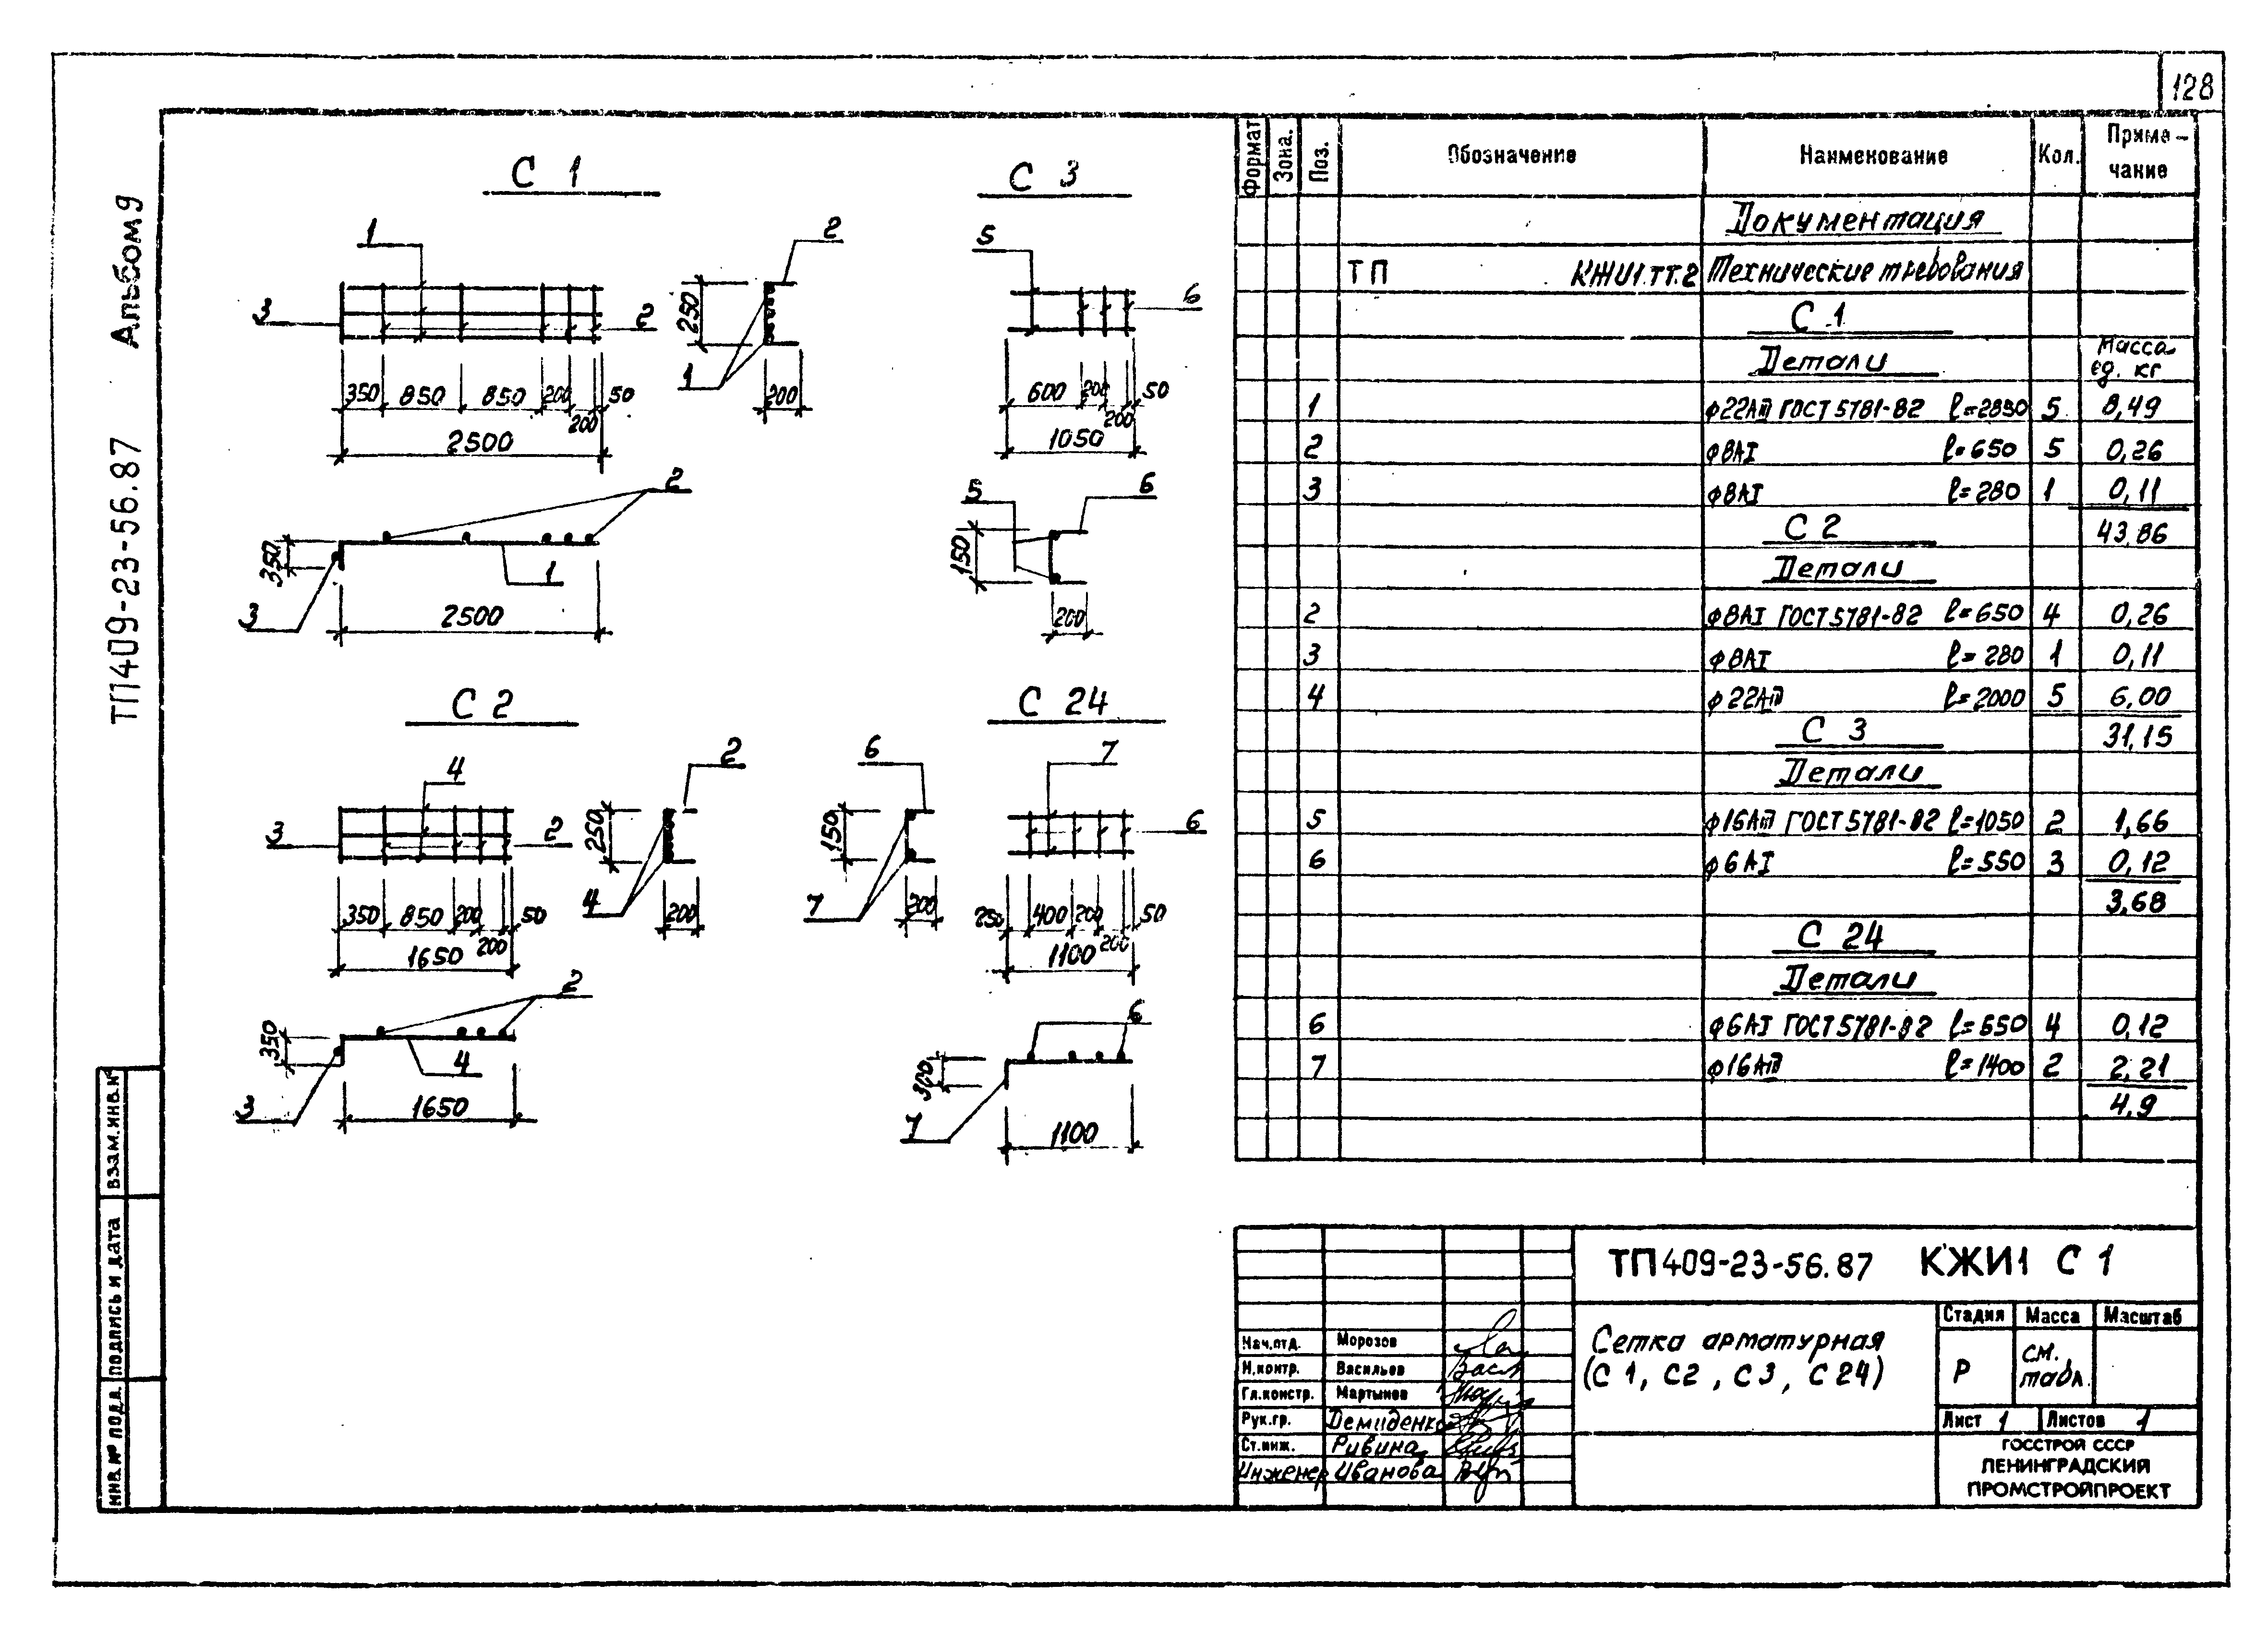 128
Альбом 9
ТП 409-23-56.87
С 1
1
2
3
2
250
1
350 850 850 200 200 50
200
2500
2
350
3
1
2500
С 3
5
6
600 200 200 50
1050
5
6
150
200
С 2
4
2
3
2
250
4
350 850 200 200 50
200
1650
2
350
3
4
1650
С 24
6
7
150
6
7
200
250 400 200 200 50
1100
6
300
7
1100
Формат Зона. Поз. Обозначение Наименование Кол. Примечание
Документация
ТП КЖИ1.ТТ.2 Технические требования
С 1
Детали Масса ед. кг
1 ф22АIII ГОСТ 5781-82 ℓ=2850 5 8,49
2 ф8АI ℓ=650 5 0,26
3 ф8АI ℓ=280 1 0,11
С 2 43,86
Детали
2 ф8АI ГОСТ 5781-82 ℓ=650 4 0,26
3 ф8АI ℓ=280 1 0,11
4 ф22АIII ℓ=2000 5 6,00
С 3 31,15
Детали
5 ф16АIII ГОСТ 5781-82 ℓ=1050 2 1,66
6 ф6АI ℓ=550 3 0,12
3,68
С 24
Детали
6 ф6АI ГОСТ 5781-82 ℓ=550 4 0,12
7 ф16АIII ℓ=1400 2 2,21
4,9
ТП 409-23-56.87 КЖИ1 С 1
Сетка арматурная
(С 1, С2, С3, С 24)
Стадия Масса Масштаб
Р см. табл.
Лист 1 Листов 1
ГОССТРОЙ СССР
ЛЕНИНГРАДСКИЙ
ПРОМСТРОЙПРОЕКТ
Нач.отд. Морозов
Н.контр. Васильев
Гл.констр. Мартынов
Рук.гр. Демиденко
Ст.инж. Ривина
Инженер Иванова
ВЗАМ.ИНВ.№
ПОДПИСЬ И ДАТА
ИНВ.№ ПОДЛ.